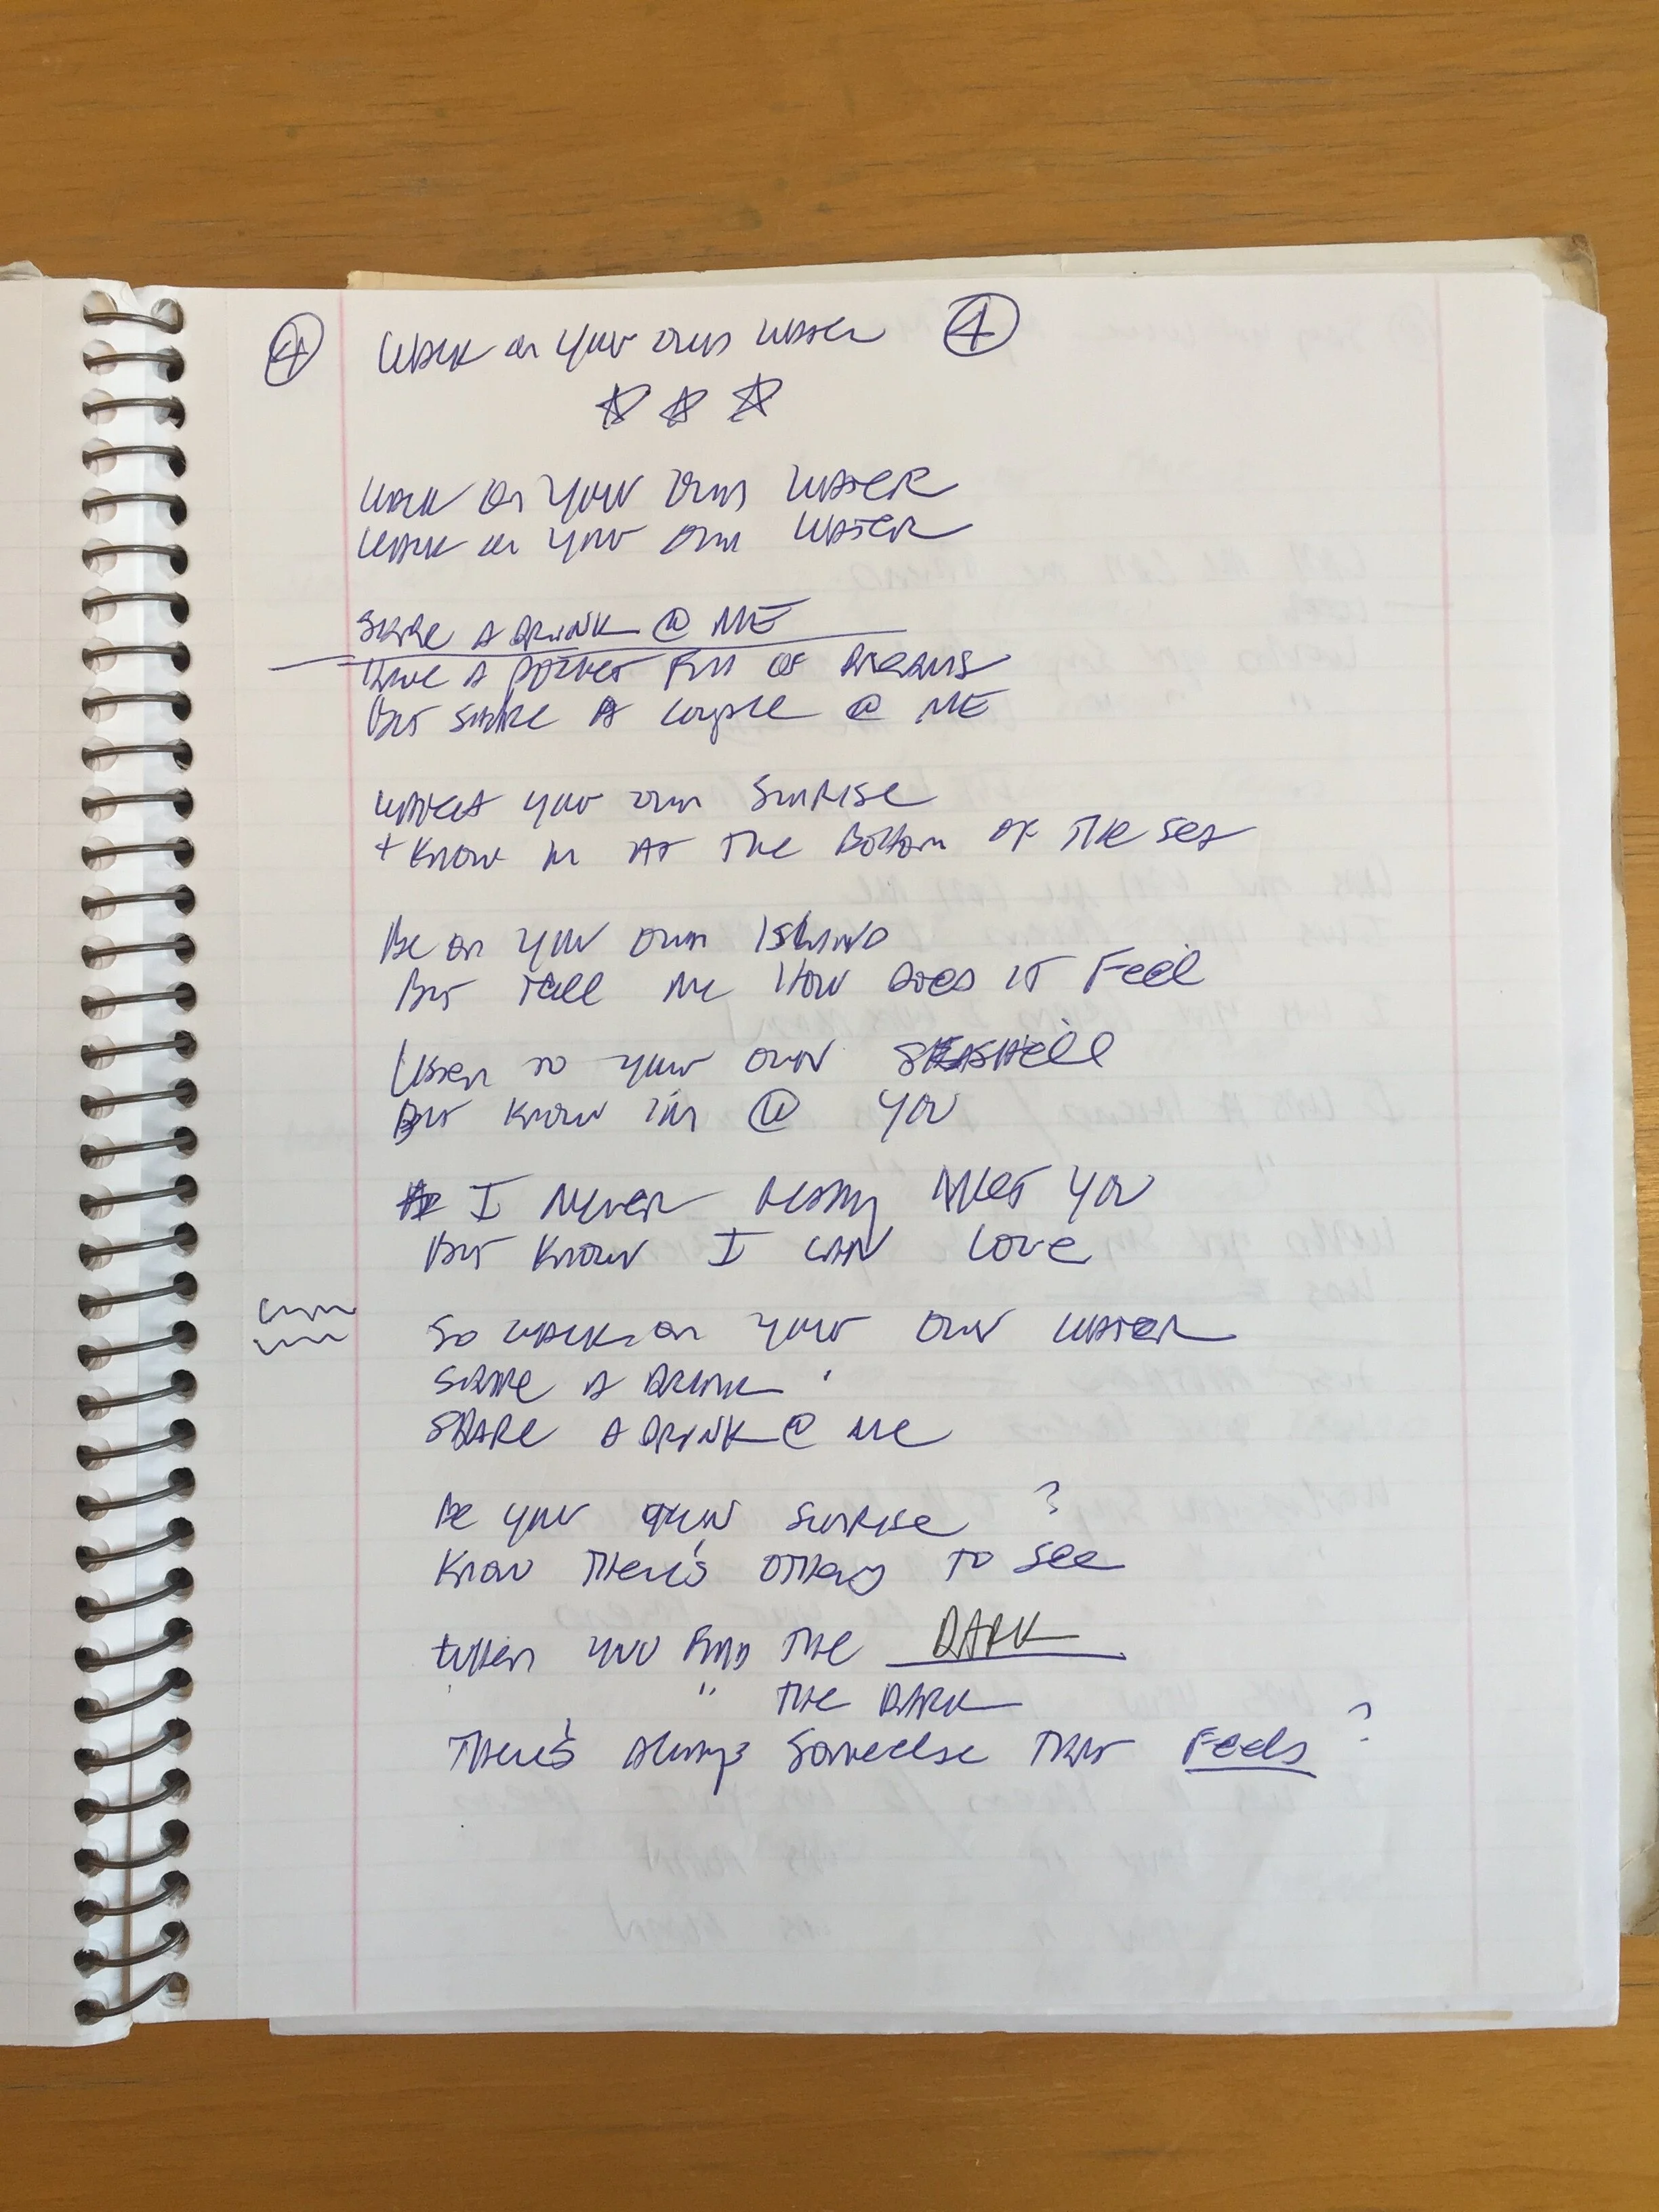 ④ Walk on your own water ④
Walk on your own water
Walk on your own water
Share a drink @ me
Have a pocket full of dreams
But share a couple @ me
Watch your own sunrise
+ know im at the bottom of the sea
Be on your own island
But tell me how does it feel
Listen to your own seashell
But know i'm @ you
I never really met you
But know I can love
So walk on your own water
Share a drink
Share a drink @ me
Be your own sunrise ?
Know there's others to see
When you find the DARK
" the DARK
There's always someelse that feels ?